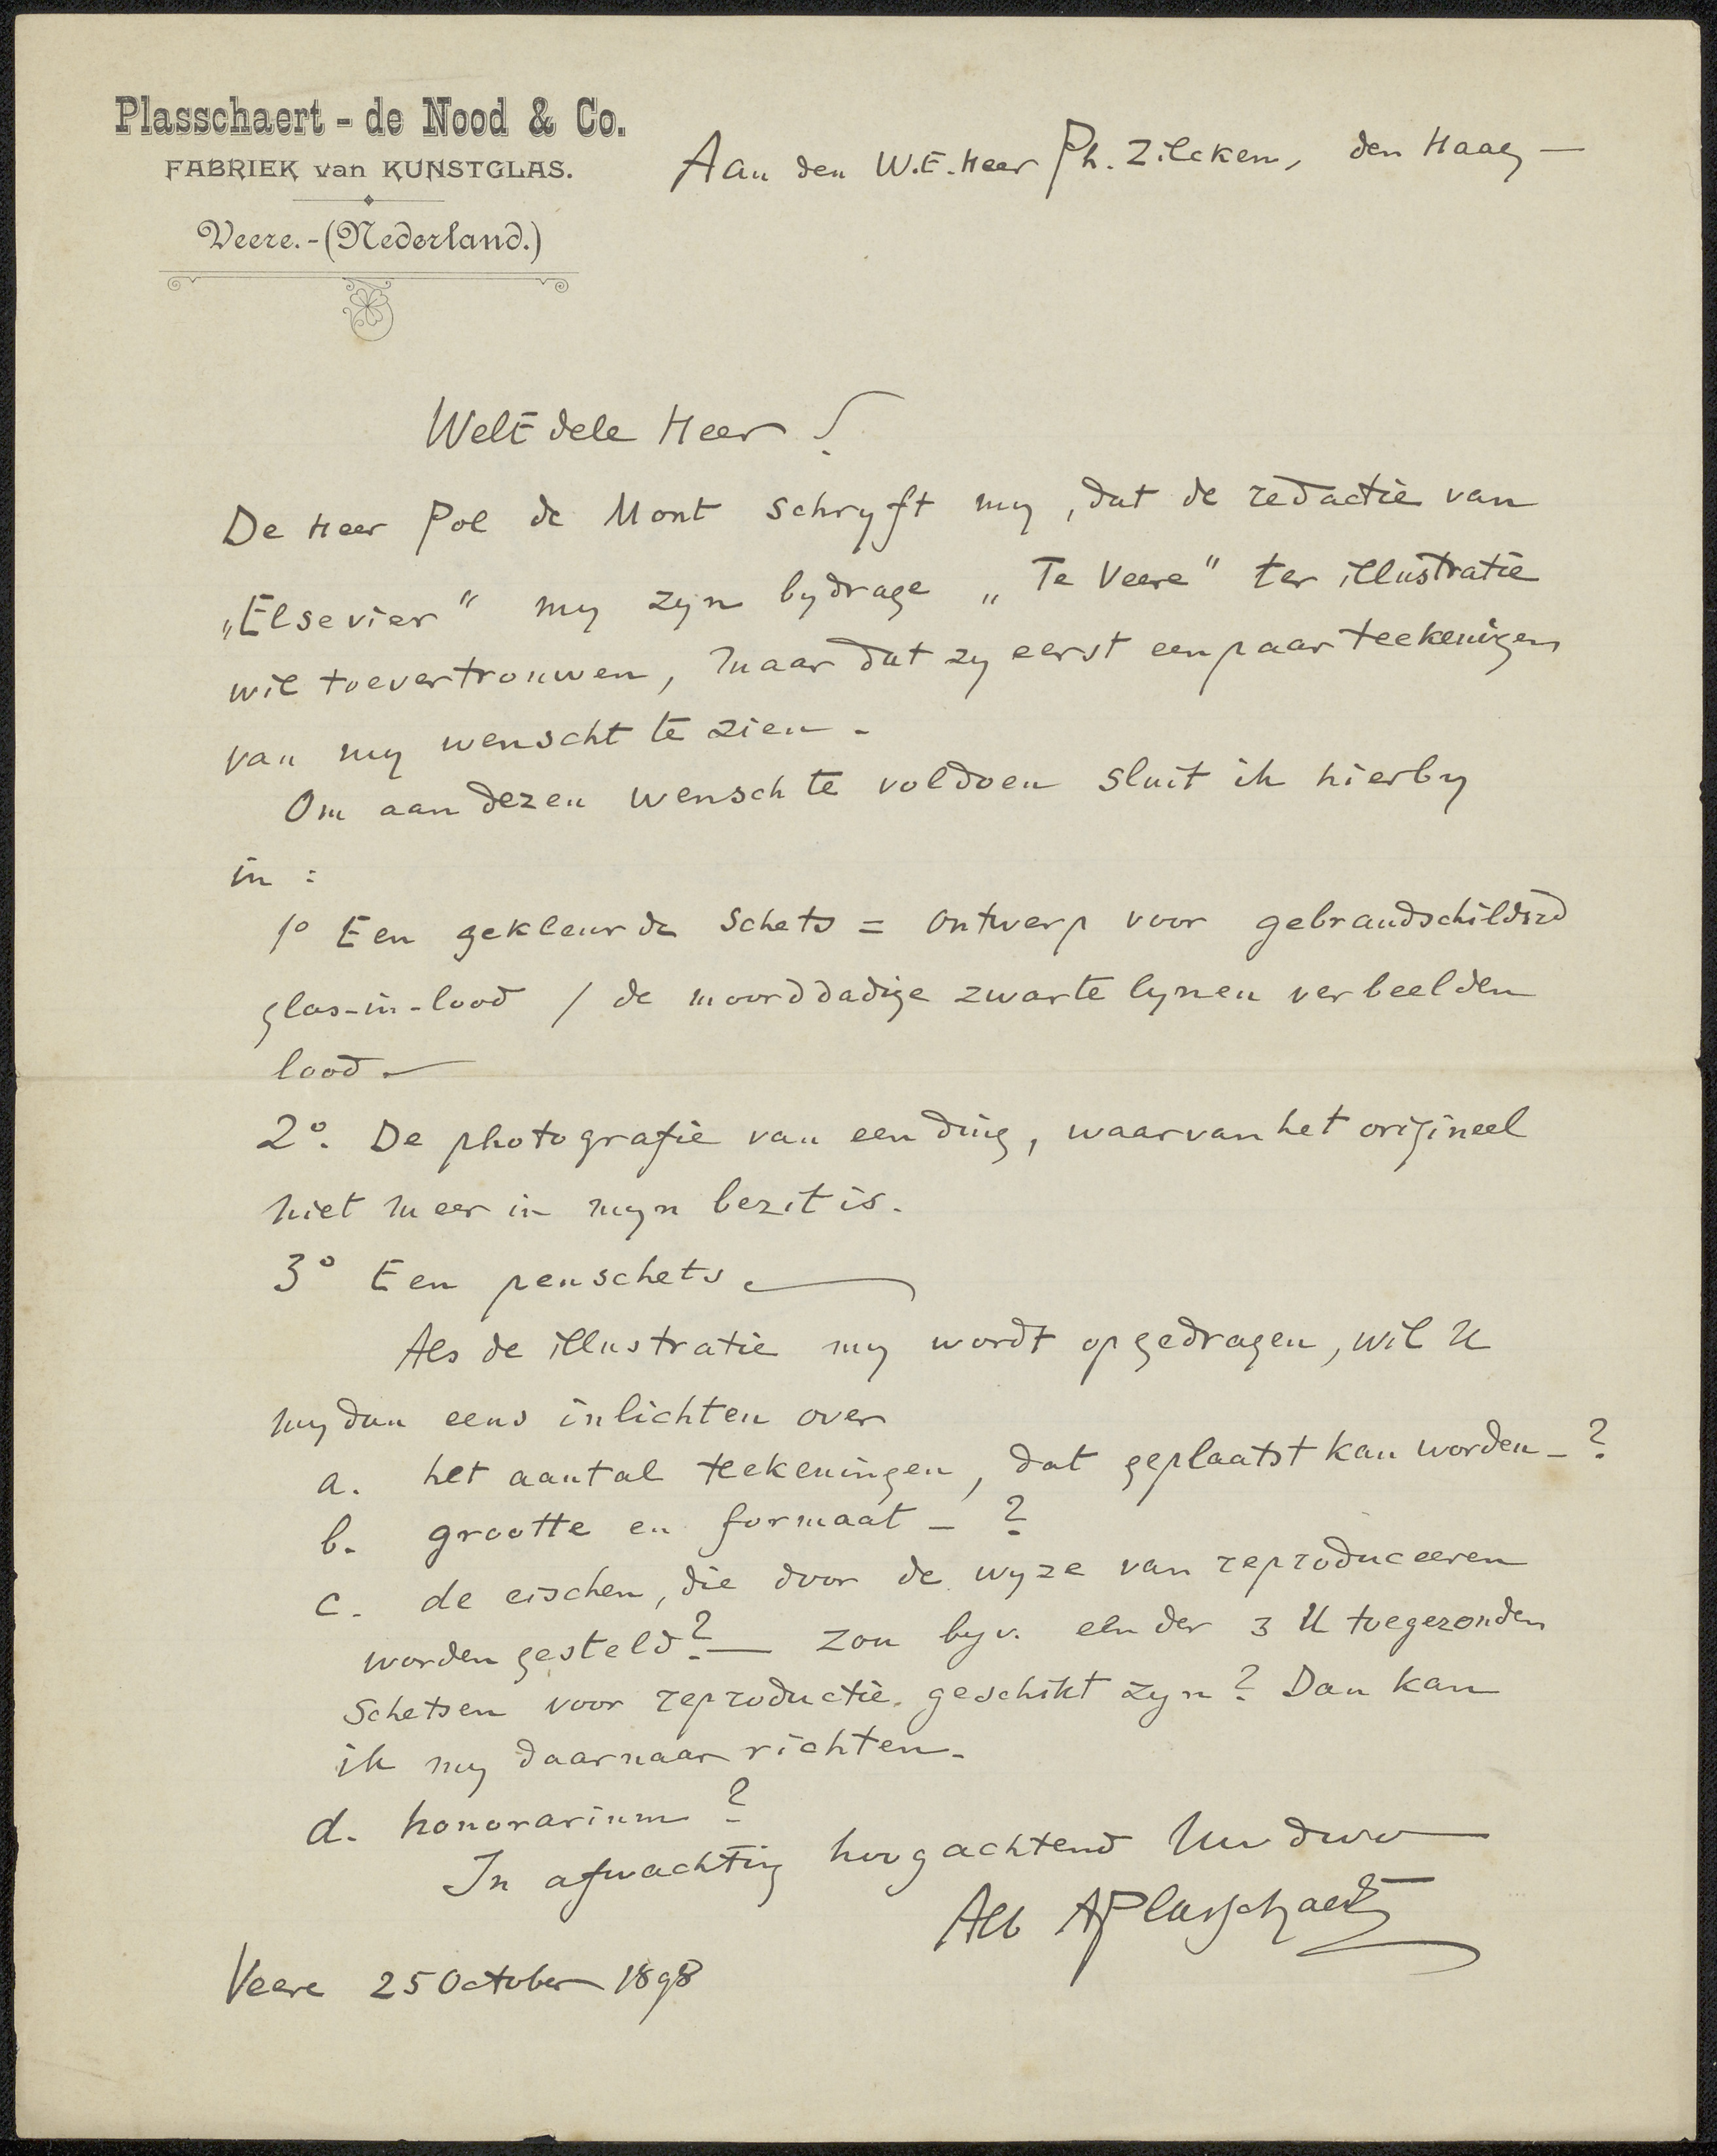 Plasschaert - de Nood & Co.
FABRIEK van KUNSTGLAS.
Veere.-(Nederland.)
Aan den W.E. Heer Ph. Zilcken, den Haag —
WelEdele Heer!
De Heer Pol de Mont schryft my, dat de redactie van
„Elsevier" my zyn bydrage „Te Veere" ter illustratie
wil toevertrouwen, maar dat zy eerst een paar teekenigen
van my wenscht te zien.
Om aan dezen wensch te voldoen sluit ik hierby
in :
1º Een gekleurde schets = ontwerp voor gebrandschilderd
glas-in-lood / de moorddadige zwarte lynen verbeelden
lood.—
2º. De photografie van een ding, waarvan het origineel
niet meer in myn bezit is.
3º Een penschets.—
Als de illustratie my wordt opgedragen, wil U
my dan eens inlichten over
a. het aantal teekeningen, dat geplaatst kan worden - ?
b. grootte en formaat - ?
c. de eischen, die door de wyze van reproduceeren
worden gesteld? — Zou byv. een der 3 U toegezonden
schetsen voor reproductie geschikt zyn? Dan kan
ik my daarnaar richten.
d. honorarium ?
In afwachting hoogachtend Uw dww
Alb A Plasschaert
Veere 25 October 1898